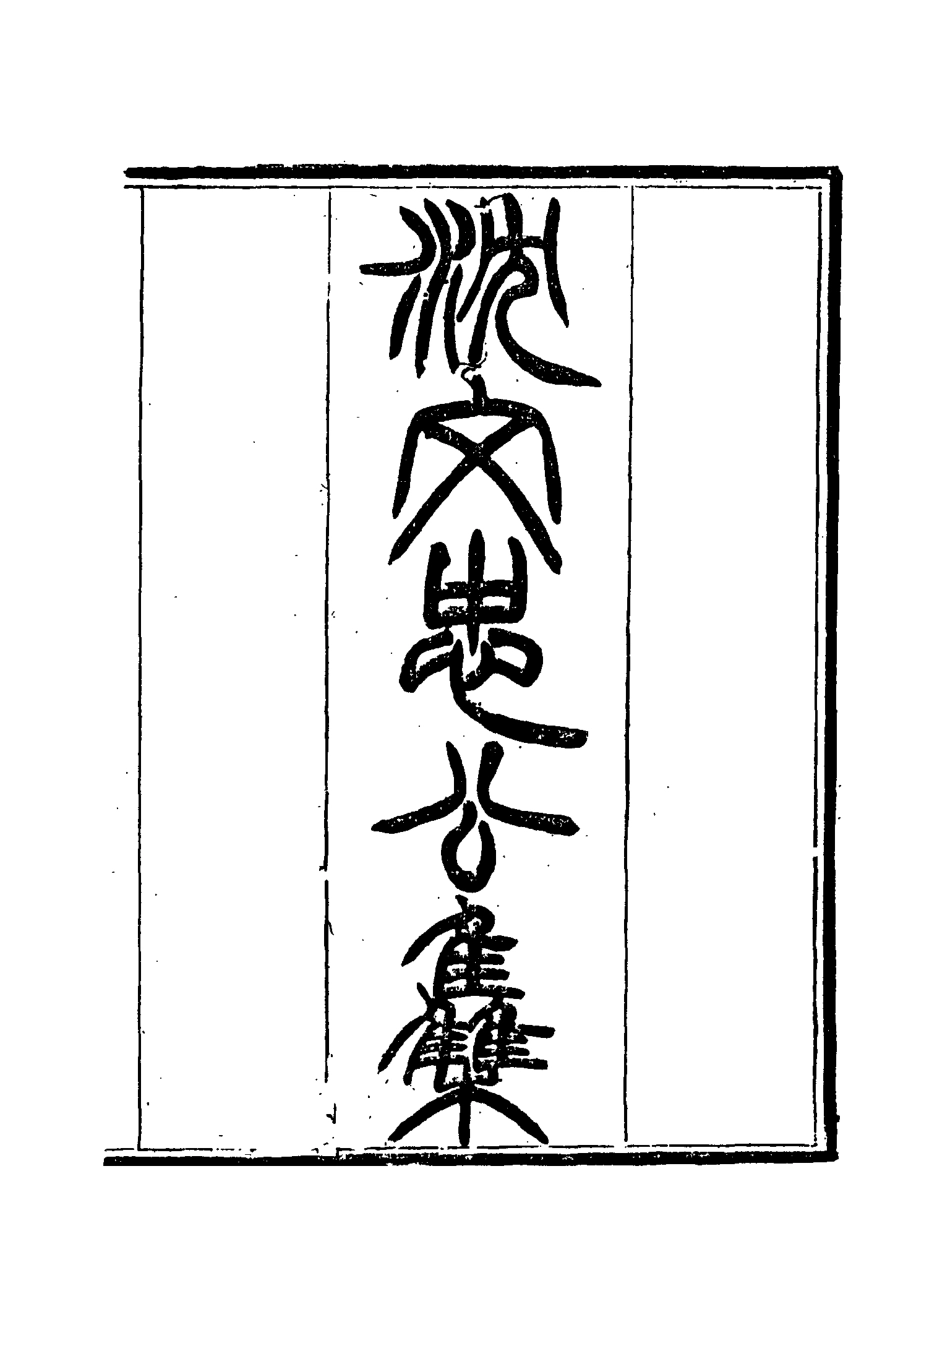 沈文忠公集